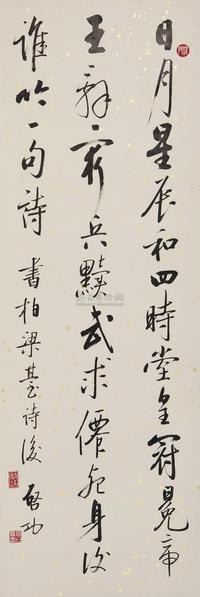 日月星辰和四時堂皇冠冕帝
王辭窮兵黷武求僊死身後
誰吟一句詩 書柏梁臺詩後 啓功